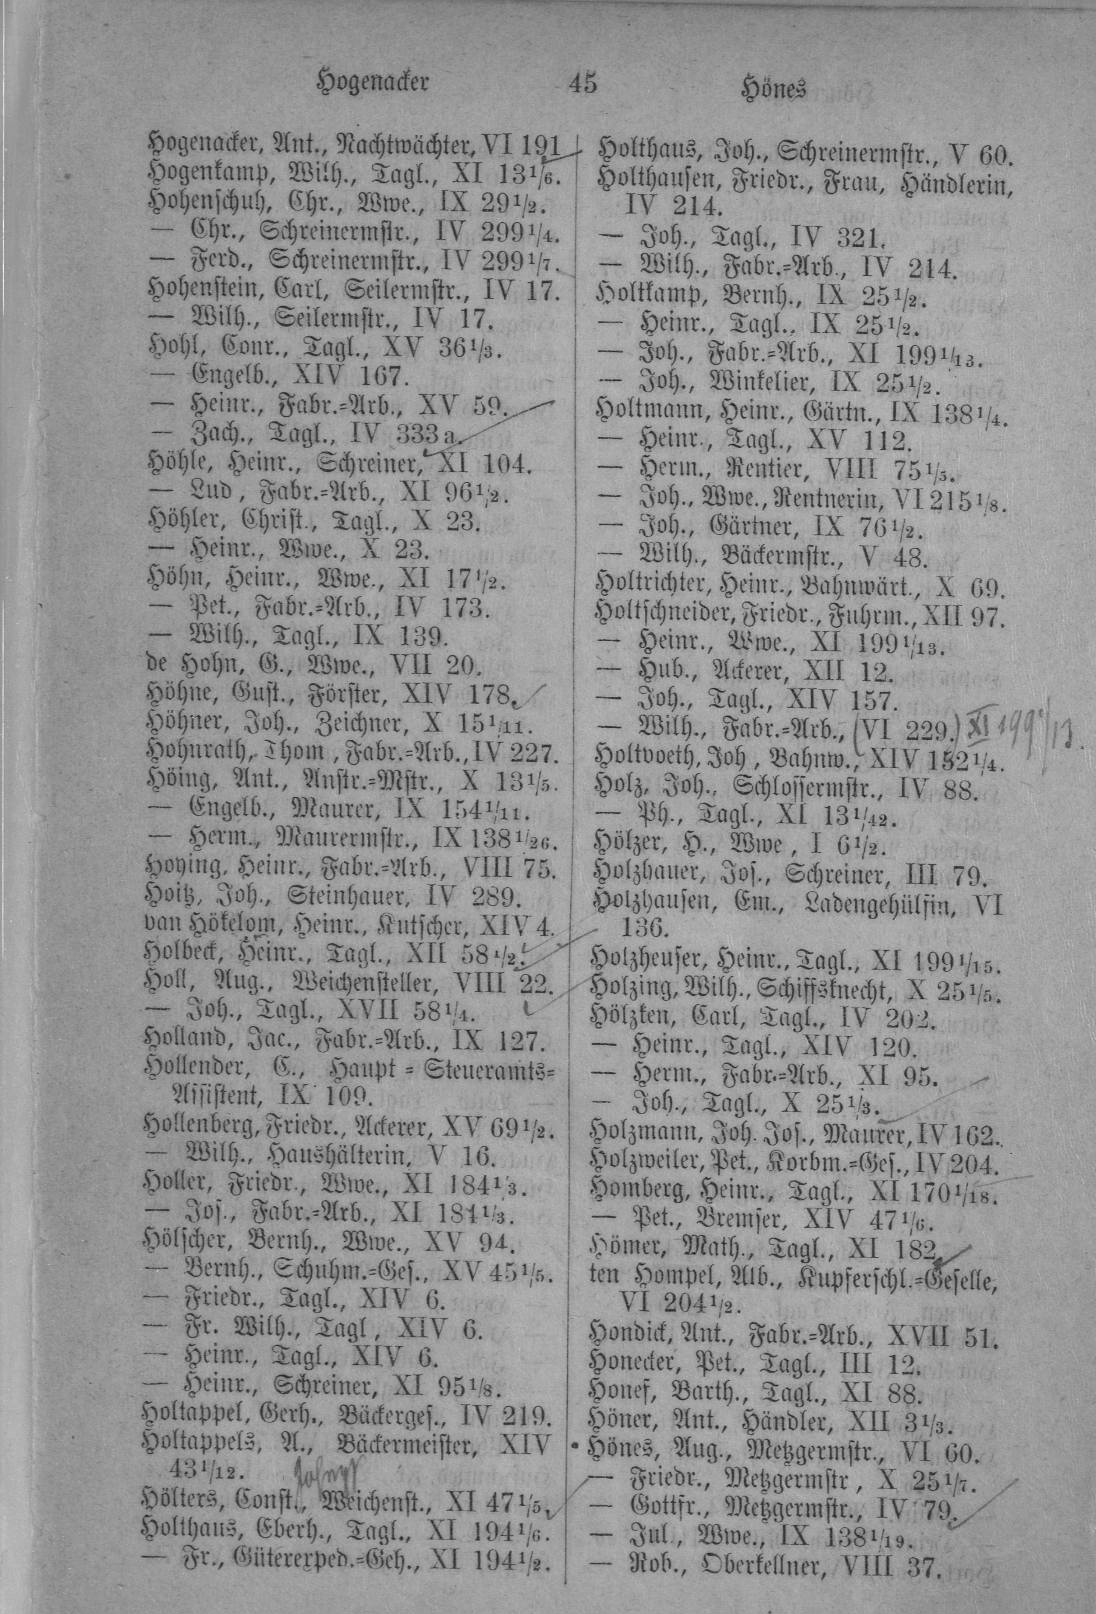 Hogenacker 45 Hönes
Hogenacker, Ant., Nachtwächter, VI 191
Hogenkamp, Wilh., Tagl., XI 13 1/6.
Hohenschuh, Chr., Wwe., IX 29 1/2.
— Chr., Schreinermstr., IV 299 1/4.
— Ferd., Schreinermstr., IV 299 1/7.
Hohenstein, Carl, Seilermstr., IV 17.
— Wilh., Seilermstr., IV 17.
Hohl, Conr., Tagl., XV 36 1/3.
— Engelb., XIV 167.
— Heinr., Fabr.=Arb., XV 59.
— Zach., Tagl., IV 333 a.
Höhle, Heinr., Schreiner, XI 104.
— Lud, Fabr.=Arb., XI 96 1/2.
Höhler, Christ., Tagl., X 23.
— Heinr., Wwe., X 23.
Höhn, Heinr., Wwe., XI 17 1/2.
— Pet., Fabr.=Arb., IV 173.
— Wilh., Tagl., IX 139.
de Hohn, G., Wwe., VII 20.
Höhne, Gust., Förster, XIV 178.
Höhner, Joh., Zeichner, X 15 1/11.
Hohnrath, Thom, Fabr.=Arb., IV 227.
Höing, Ant., Anstr.=Mstr., X 13 1/5.
— Engelb., Maurer, IX 154 1/11.
— Herm., Maurermstr., IX 138 1/26.
Hoying, Heinr., Fabr.=Arb., VIII 75.
Hoitz, Joh., Steinhauer, IV 289.
van Hökelom, Heinr., Kutscher, XIV 4.
Holbeck, Heinr., Tagl., XII 58 1/2.
Holl, Aug., Weichensteller, VIII 22.
— Joh., Tagl., XVII 58 1/4.
Holland, Jac., Fabr.=Arb., IX 127.
Hollender, C., Haupt=Steueramts=
Assistent, IX 109.
Hollenberg, Friedr., Ackerer, XV 69 1/2.
— Wilh., Haushälterin, V 16.
Holler, Friedr., Wwe., XI 184 1/3.
— Jos., Fabr.=Arb., XI 184 1/3.
Hölscher, Bernh., Wwe., XV 94.
— Bernh., Schuhm.=Ges., XV 45 1/5.
— Friedr., Tagl., XIV 6.
— Fr. Wilh., Tagl, XIV 6.
— Heinr., Tagl., XIV 6.
— Heinr., Schreiner, XI 95 1/8.
Holtappel, Gerh., Bäckerges., IV 219.
Holtappels, A., Bäckermeister, XIV
43 1/12.
Hölters, Const., Weichenst., XI 47 1/5.
Holthaus, Eberh., Tagl., XI 194 1/6.
— Fr., Güterexped.=Geh., XI 194 1/2.
Holthaus, Joh., Schreinermstr., V 60.
Holthausen, Friedr., Frau, Händlerin,
IV 214.
— Joh., Tagl., IV 321.
— Wilh., Fabr.=Arb., IV 214.
Holtkamp, Bernh., IX 25 1/2.
— Heinr., Tagl., IX 25 1/2.
— Joh., Fabr.=Arb., XI 199 1/13.
— Joh., Winkelier, IX 25 1/2.
Holtmann, Heinr., Gärtn., IX 138 1/4.
— Heinr., Tagl., XV 112.
— Herm., Rentier, VIII 75 1/5.
— Joh., Wwe., Rentnerin, VI 215 1/8.
— Joh., Gärtner, IX 76 1/2.
— Wilh., Bäckermstr., V 48.
Holtrichter, Heinr., Bahnwärt., X 69.
Holtschneider, Friedr., Fuhrm., XII 97.
— Heinr., Wwe., XI 199 1/13.
— Hub., Ackerer, XII 12.
— Joh., Tagl., XIV 157.
— Wilh., Fabr.=Arb., (VI 229.) XI 199 1/13.
Holtvoeth, Joh, Bahnw., XIV 152 1/4.
Holz, Joh., Schlossermstr., IV 88.
— Ph., Tagl., XI 13 1/42.
Hölzer, H., Wwe, I 6 1/2.
Holzhauer, Jos., Schreiner, III 79.
Holzhausen, Em., Ladengehülfin, VI
136.
Holzheuser, Heinr., Tagl., XI 199 1/15.
Holzing, Wilh., Schiffsknecht, X 25 1/5.
Hölzken, Carl, Tagl., IV 202.
— Heinr., Tagl., XIV 120.
— Herm., Fabr.=Arb., XI 95.
— Joh., Tagl., X 25 1/3.
Holzmann, Joh. Jos., Maurer, IV 162.
Holzweiler, Pet., Korbm.=Ges., IV 204.
Homberg, Heinr., Tagl., XI 170 1/18.
— Pet., Bremser, XIV 47 1/6.
Hömer, Math., Tagl., XI 182.
ten Hompel, Alb., Kupferschl.=Geselle,
VI 204 1/2.
Hondick, Ant., Fabr.=Arb., XVII 51.
Honecker, Pet., Tagl., III 12.
Honef, Barth., Tagl., XI 88.
Höner, Ant., Händler, XII 3 1/3.
Hönes, Aug., Metzgermstr., VI 60.
— Friedr., Metzgermstr, X 25 1/7.
— Gottfr., Metzgermstr., IV 79.
— Jul., Wwe., IX 138 1/19.
— Rob., Oberkellner, VIII 37.